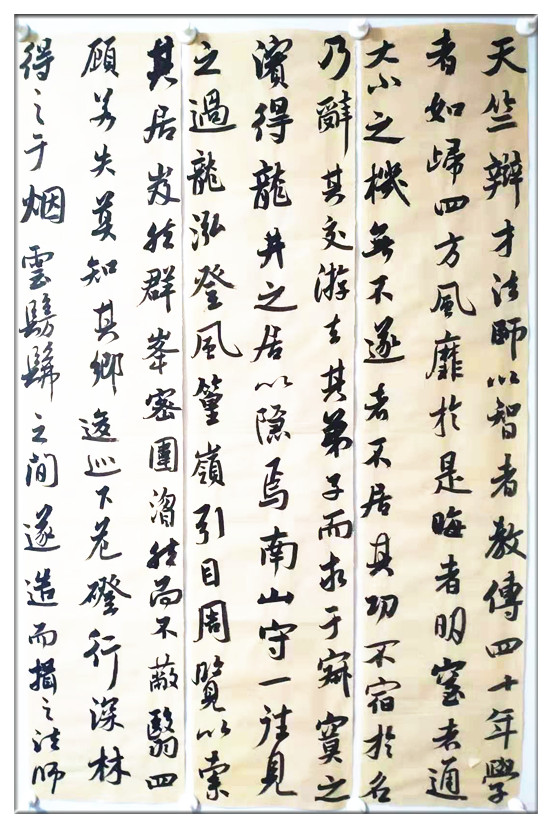 天竺辯才法師以智者教傳四十年學
者如歸四方風靡於是晦者明窒者通
大小之機無不遂者不居其功不宿於名
乃辭其交游去其弟子而求于寂寞之
濱得龍井之居以隱焉南山守一往見
之過龍泓登風篁嶺引目周覽以索
其居岌然群峯密圍溜然而不蔽翳四
顧若失莫知其鄉逡巡下危磴行深林
得之于烟雲髣髴之間遂造而揖之法師